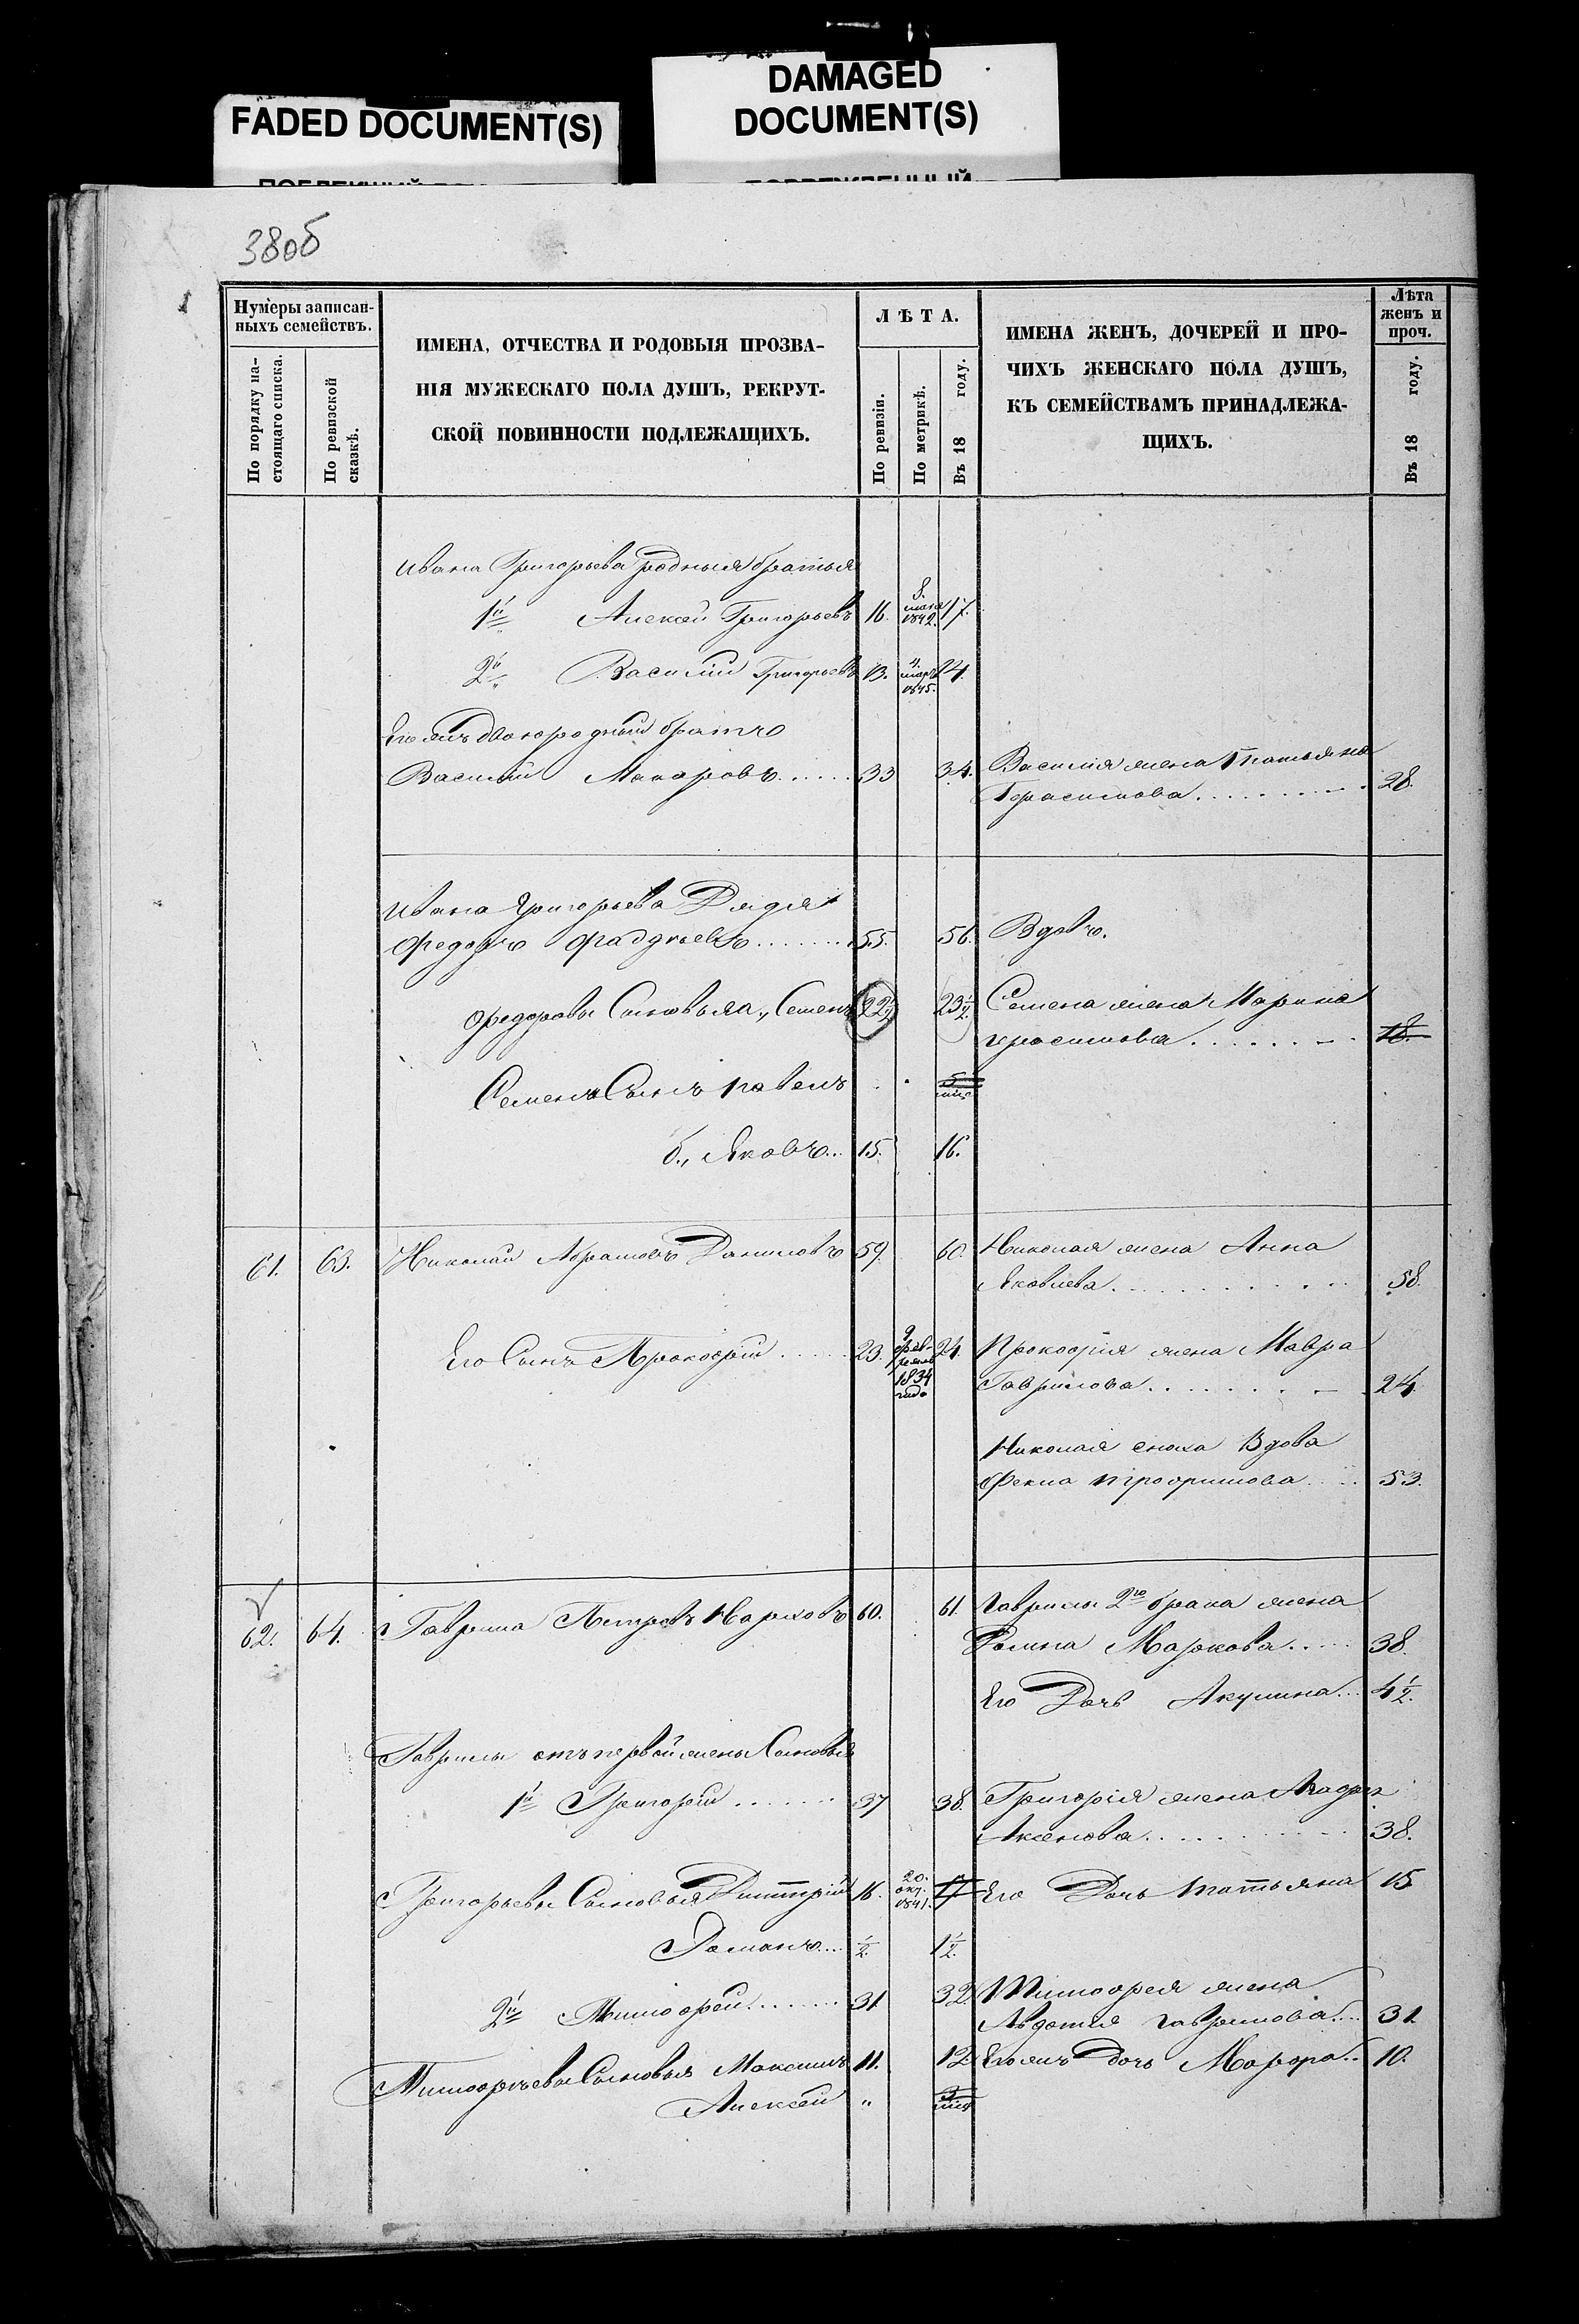 FADED DOCUMENT(S)
DAMAGED
DOCUMENT(S)
380б
Нумеры записан-
ныхъ семействъ.
По порядку на-
стоящаго списка.
По ревизской
сказкѣ.
ИМЕНА, ОТЧЕСТВА И РОДОВЫЯ ПРОЗВА-
НІЯ МУЖЕСКАГО ПОЛА ДУШЪ, РЕКРУТ-
СКОЙ ПОВИННОСТИ ПОДЛЕЖАЩИХЪ.
ЛѢТА.
По ревизіи.
По метрикѣ.
Въ 18 году.
ИМЕНА ЖЕНЪ, ДОЧЕРЕЙ И ПРО-
ЧИХЪ ЖЕНСКАГО ПОЛА ДУШЪ,
КЪ СЕМЕЙСТВАМЪ ПРИНАДЛЕЖА-
ЩИХЪ.
Лѣта
женъ и
проч.
Въ 18 году.
Ивана Григорьева родныя братья
1й Алексей Григорьевъ 16. 8. 1842. 17.
2й Василій Григорьевъ 13. 4. мар. 1845. 14.
Его жъ двоюродный братъ
Василій Макаровъ 33 34. Василія жена Татьяна
Герасимова 28.
Ивана Григорьева Дядя
Федоръ Фадѣевъ 55. 56. Вдовъ.
Федоровы Сыновья а., Семенъ 22½ 23½ Семена жена Марина
Герасимова 18.
Семена Сынъ Павелъ 5
б., Яковъ 15. 16.
61. 63. Николай Абрамовъ Даниловъ 59. 60. Николая жена Анна
Яковлева 58.
Его Сынъ Прокофій 23. 9 февраля 1834 года 24. Прокофія жена Мавра
Гаврилова 24.
Николая сноха Вдова
Фекла Трофимова 53.
62. 64. Гаврила Петровъ 60. 61. Гаврилы 2го брака жена
Маркова 38.
Его Дочь Акулина 4½.
Гаврилы отъ первой жены Сыновья
1й Григорій 37 38. Григорія жена
Аксенова 38.
Григорьевы Сыновья Дмитрій 16. 20. окт. 1841. 17 Его Дочь Татьяна 15
Романъ ½. 1½.
2й Тимофей 31 32 Тимофея жена
Авдотья Гаврилова 31.
Тимофѣевы Сыновья Максимъ 11. 12 Его жъ дочь Марфа 10.
Алексѣй „ 3